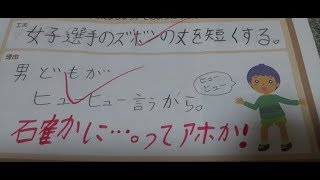 工夫
女子選手のズボンの丈を短くする。
理由
男どもが…
ヒューヒュー言うから。
ヒュー
ヒュー
石隺かに…。ってアホか!